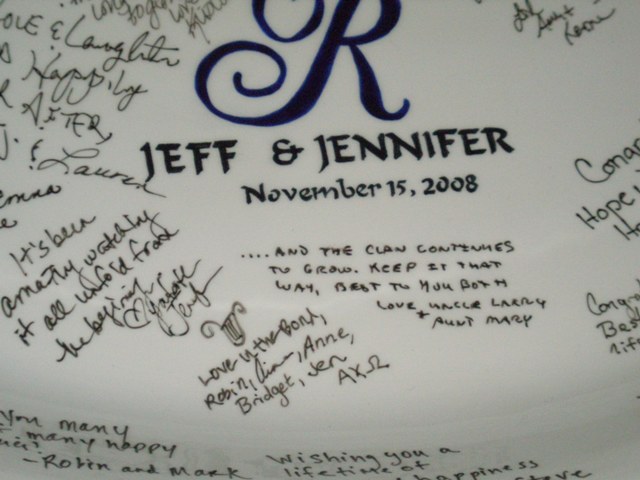 R
JEFF & JENNIFER
November 15, 2008
& Laughter
Happily
AFTER
& Lauren
It's been
amazing watching
it all unfold from
the beginning
....AND THE CLAN CONTINUES
TO GROW. KEEP IT THAT
WAY, BEST TO YOU BOTH
LOVE UNCLE LARRY
+ AUNT MARY
Love in the Bond,
Robin, Anne,
Bridget, Jen
ΑΧΩ
You many
many happy
-Robin and Mark
Wishing you a
lifetime of
happiness
Steve
Hope
Best